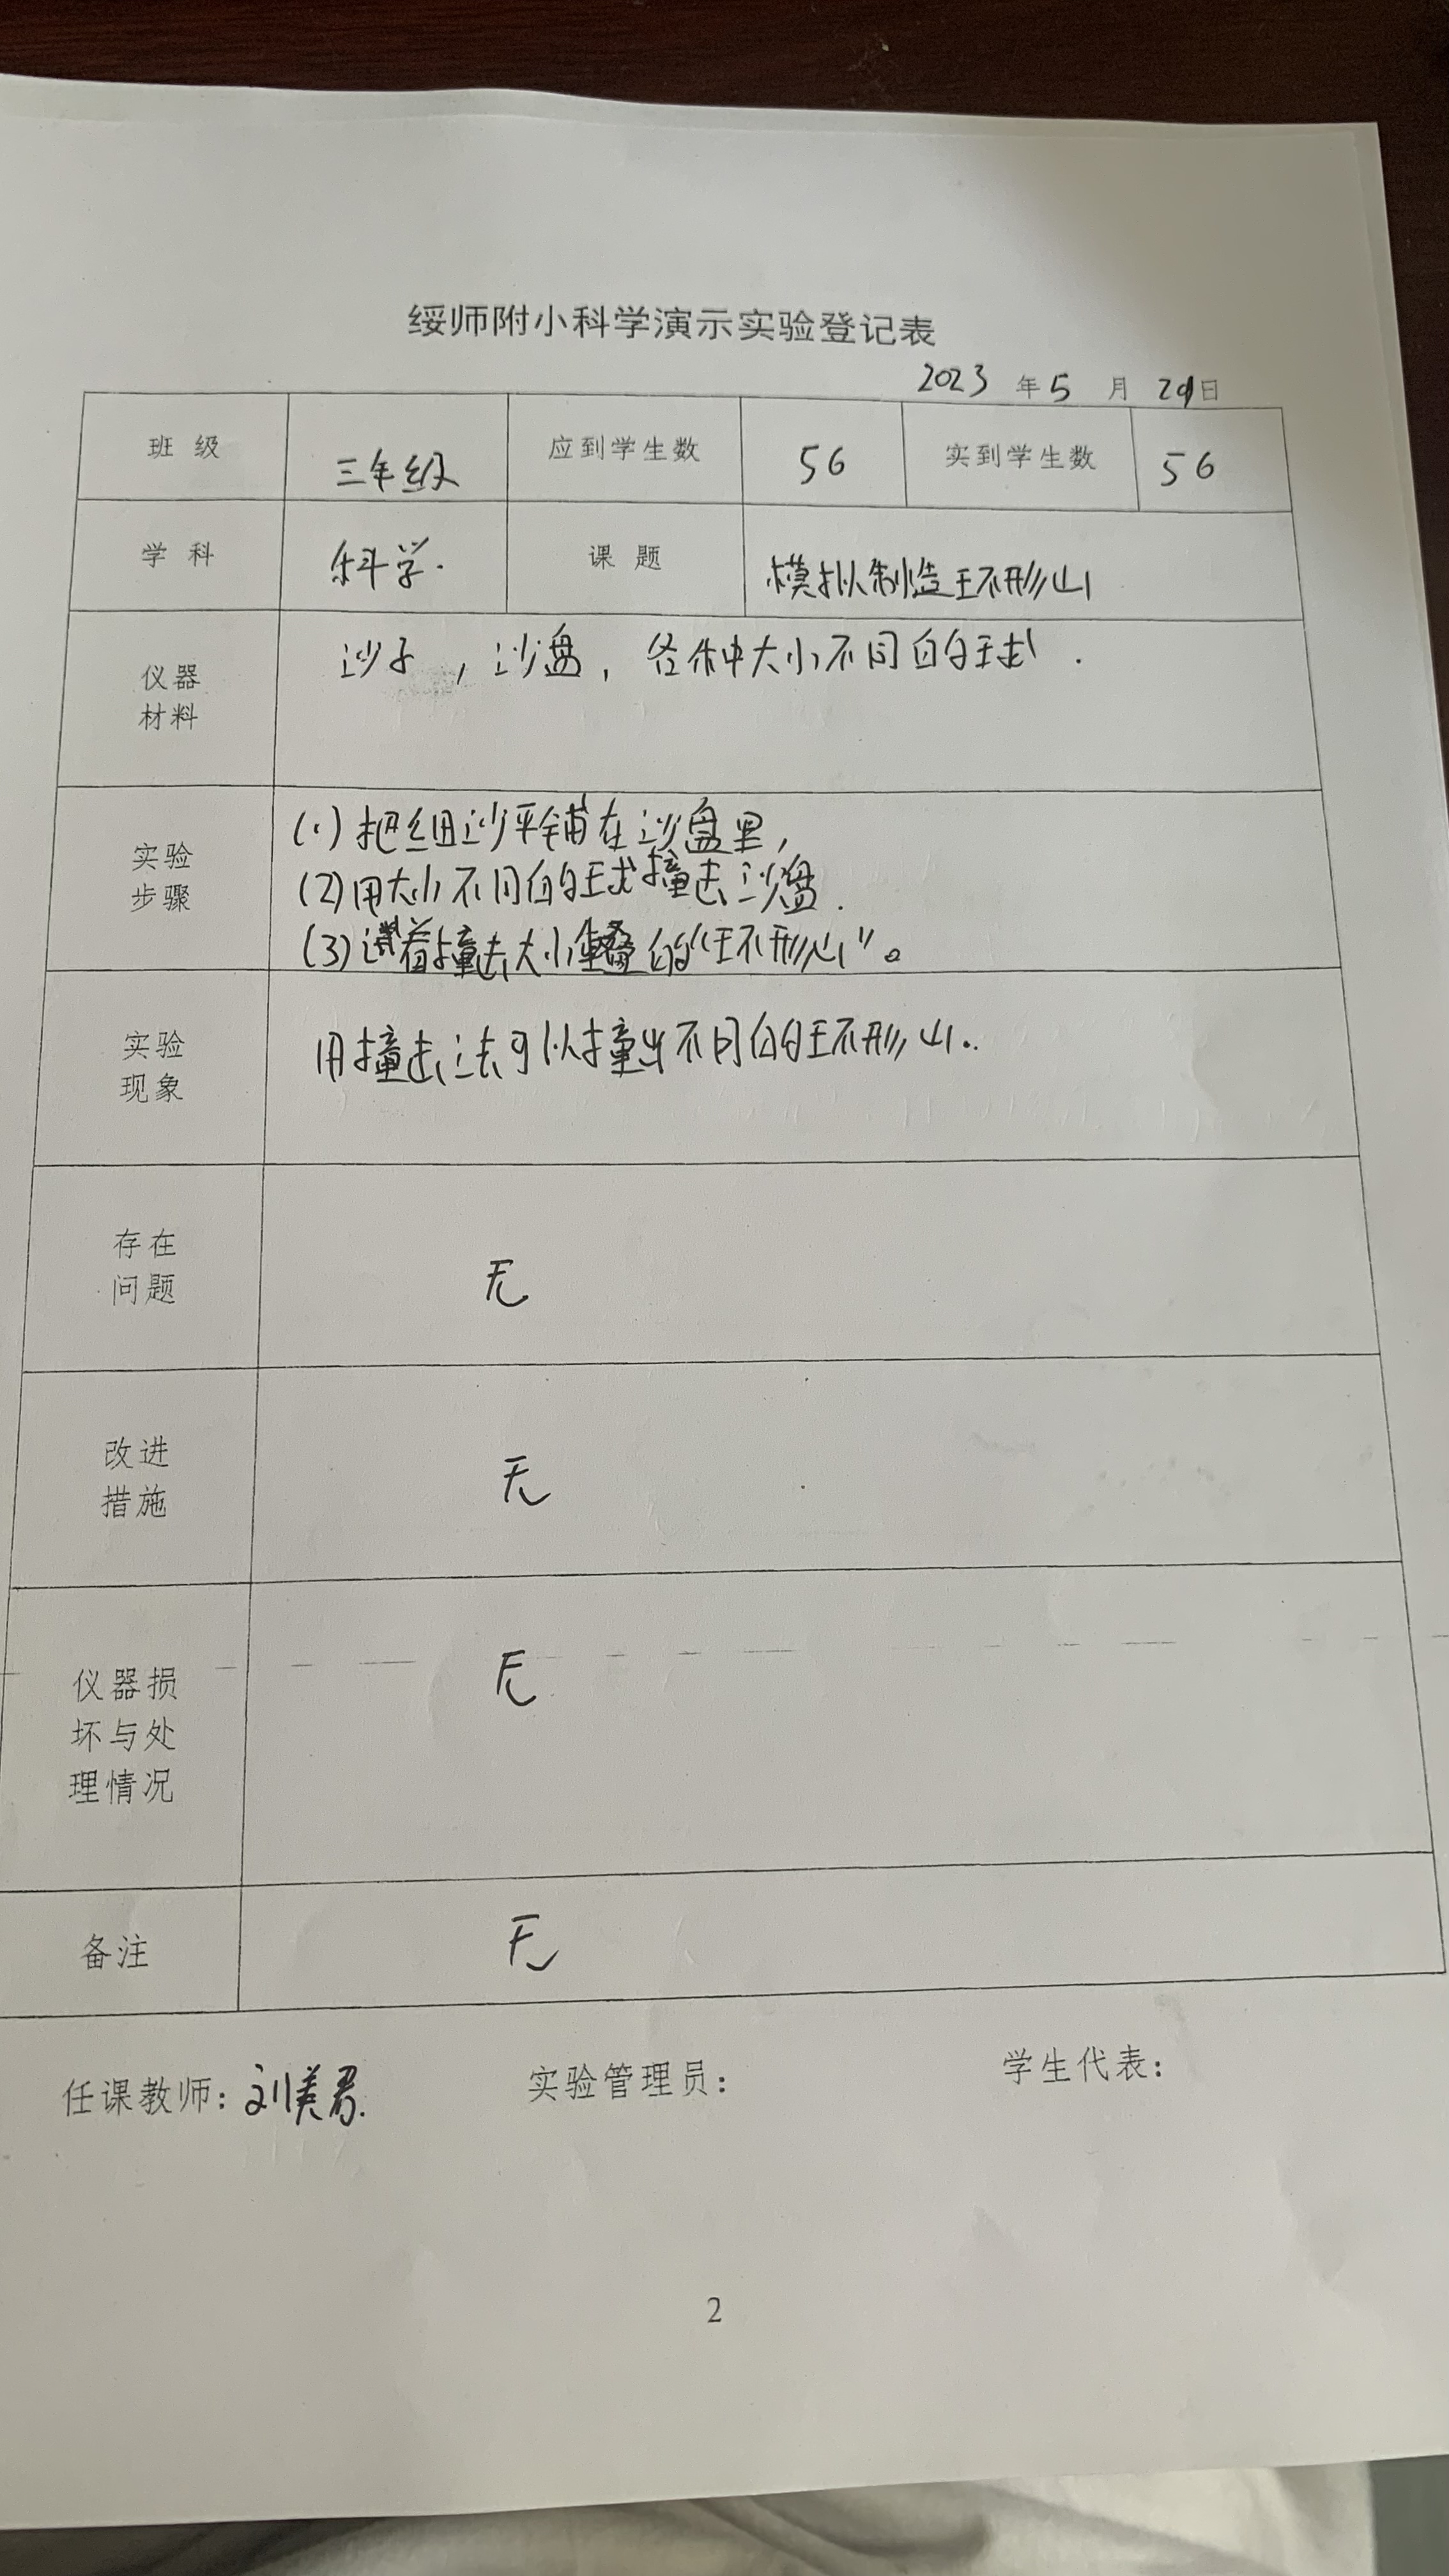 绥师附小科学演示实验登记表
2023 年 5 月 29 日
班 级 三年级 应到学生数 56 实到学生数 56
学 科 科学. 课 题 模拟制造环形山
仪器
材料
沙子,沙盘,各种大小不同的球.
实验
步骤
(1)把细沙平铺在沙盘里,
(2)用大小不同的球撞击沙盘.
(3)试着撞击大小重叠的“环形山”。
实验
现象
用撞击法可以撞出不同的环形山.
存在
问题
无
改进
措施
无
仪器损
坏与处
理情况
无
备注 无
任课教师:刘美君. 实验管理员: 学生代表:
2